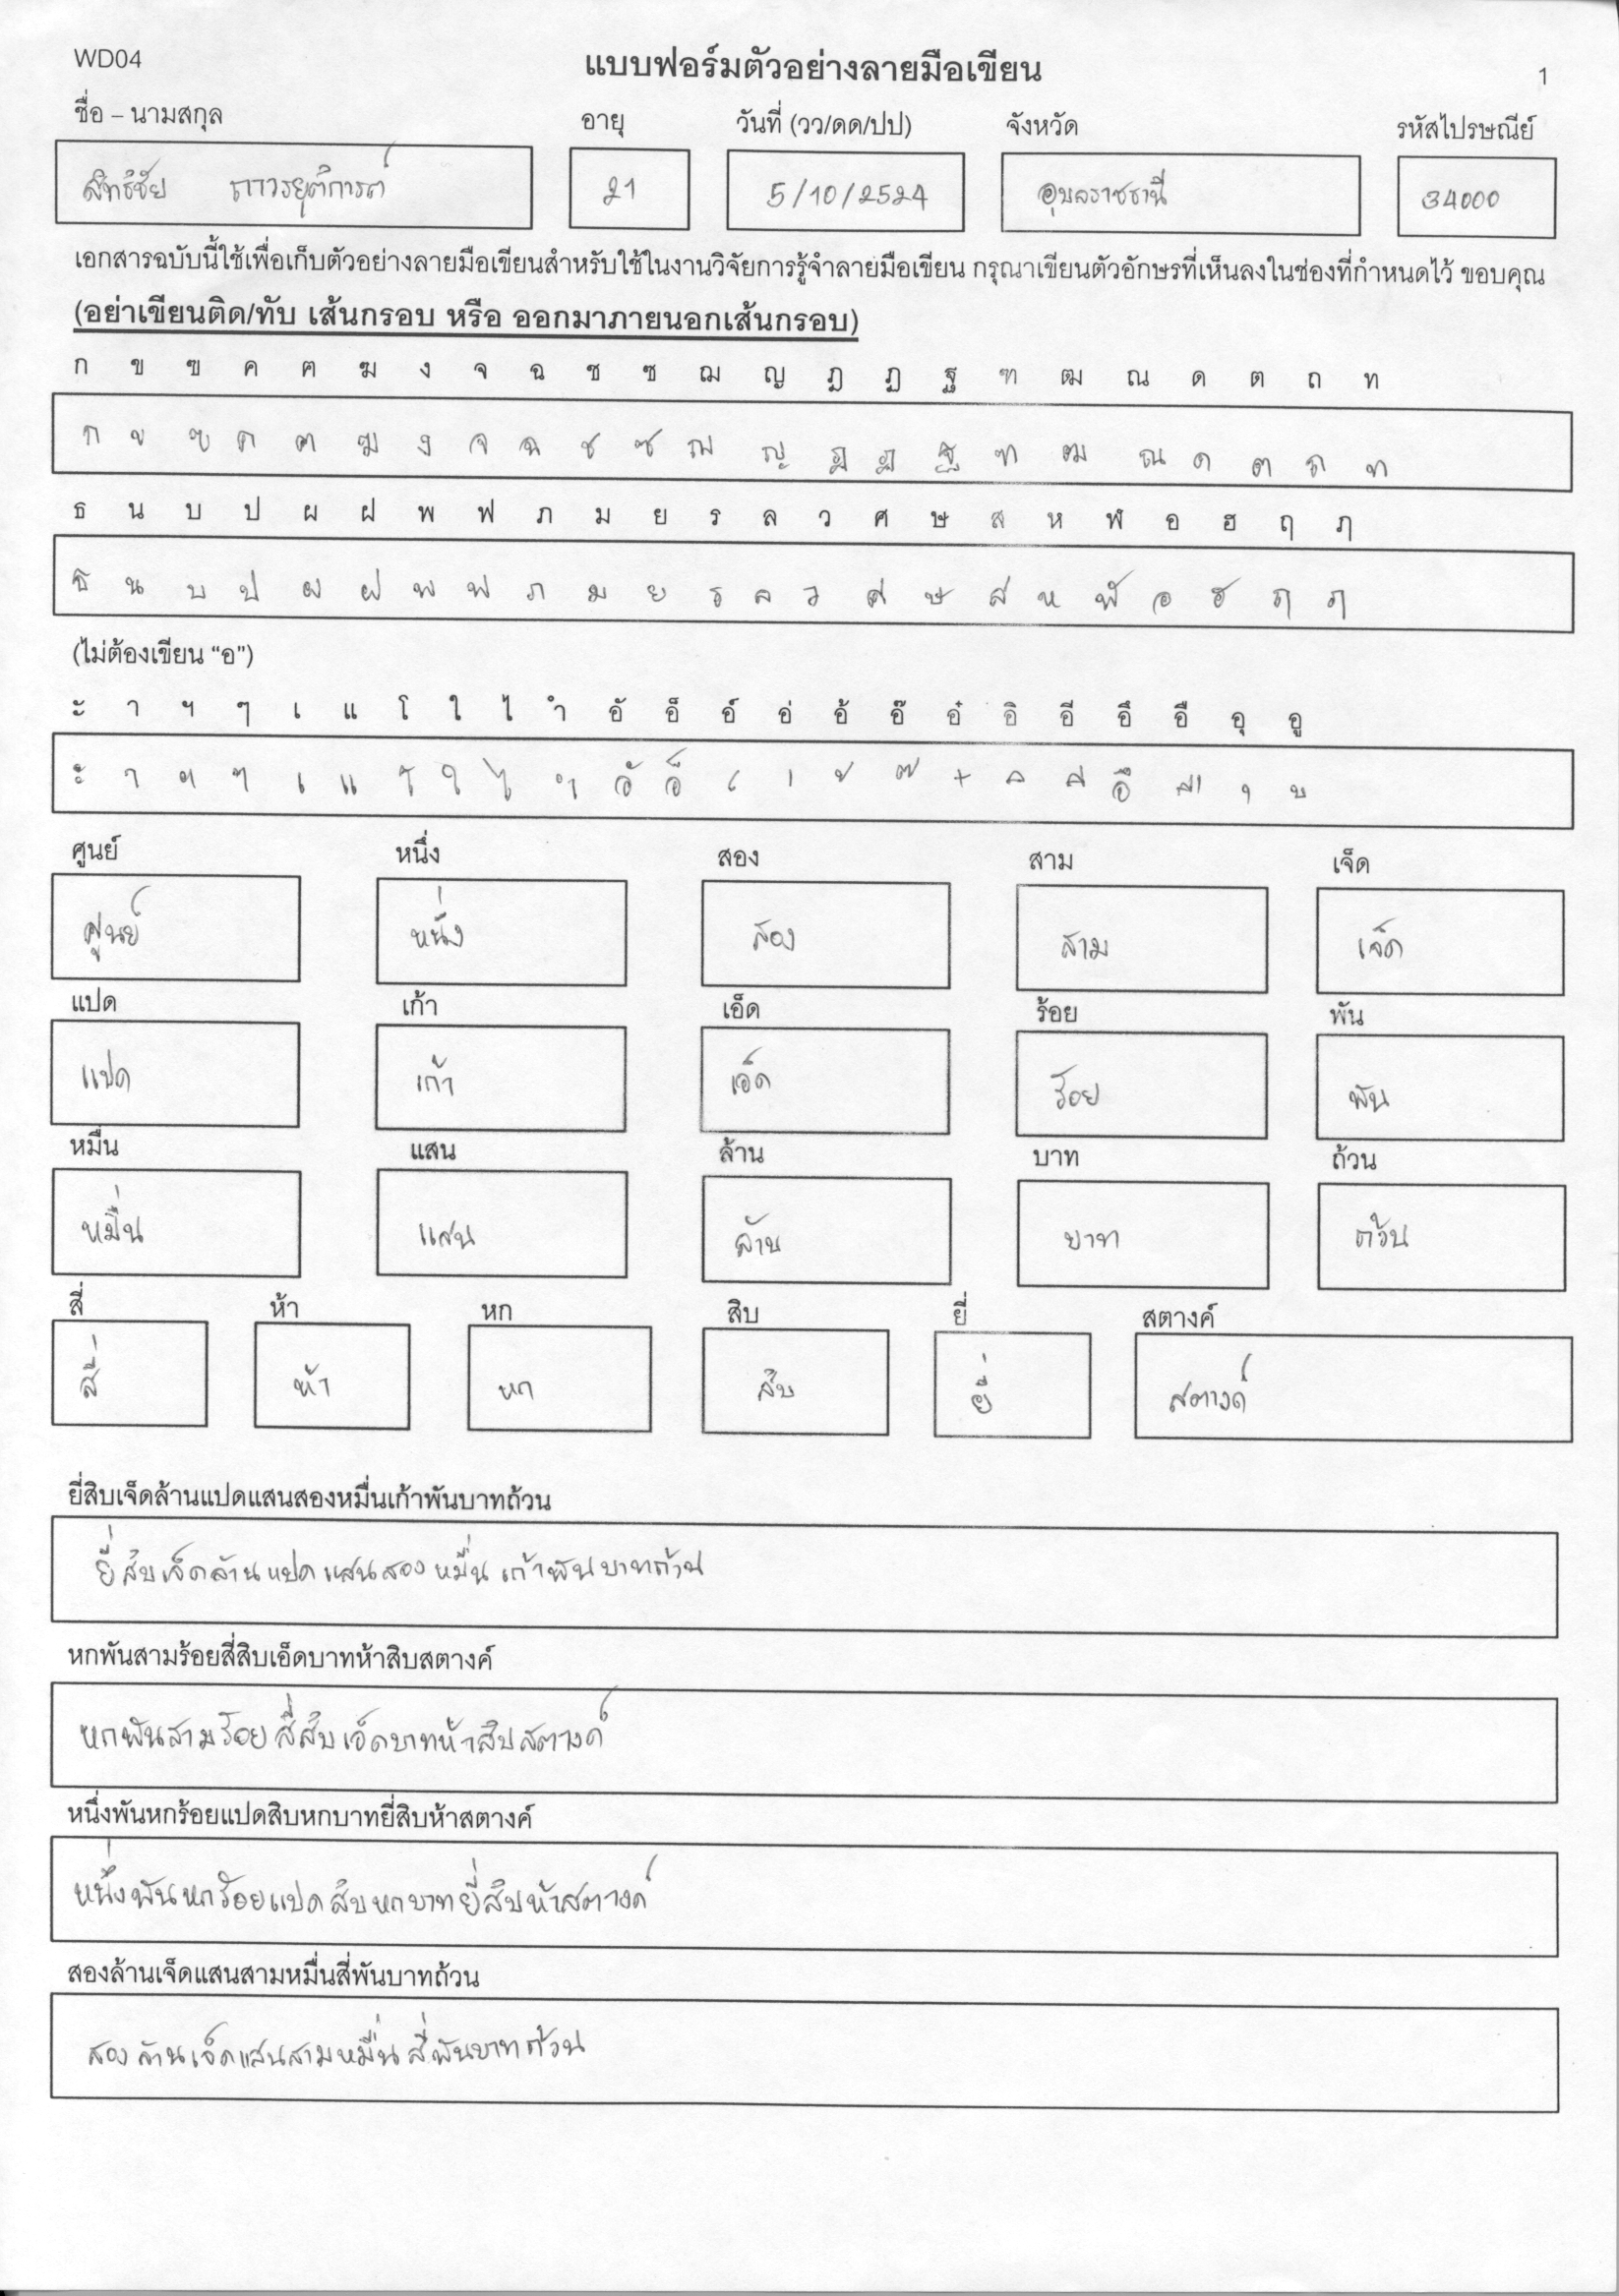 WD04
แบบฟอร์มตัวอย่างลายมือเขียน
1
ชื่อ – นามสกุล อายุ วันที่ (วว/ดด/ปป) จังหวัด รหัสไปรษณีย์
สิทธิชัย ถาวรยุติการต์ 21 5/10/2524 อุบลราชธานี 34000
เอกสารฉบับนี้ใช้เพื่อเก็บตัวอย่างลายมือเขียนสำหรับใช้ในงานวิจัยการรู้จำลายมือเขียน กรุณาเขียนตัวอักษรที่เห็นลงในช่องที่กำหนดไว้ ขอบคุณ
(อย่าเขียนติด/ทับ เส้นกรอบ หรือ ออกมาภายนอกเส้นกรอบ)
ก ข ฃ ค ฅ ฆ ง จ ฉ ช ซ ฌ ญ ฎ ฏ ฐ ฑ ฒ ณ ด ต ถ ท
ก ข ฃ ค ฅ ฆ ง จ ฉ ช ซ ฌ ญ ฎ ฏ ฐ ฑ ฒ ณ ด ต ถ ท
ธ น บ ป ผ ฝ พ ฟ ภ ม ย ร ล ว ศ ษ ส ห ฬ อ ฮ ฤ ฦ
ธ น บ ป ผ ฝ พ ฟ ภ ม ย ร ล ว ศ ษ ส ห ฬ อ ฮ ฤ ฦ
(ไม่ต้องเขียน “อ”)
ะ า ฯ ๆ เ แ โ ใ ไ ำ อั อ็ อ์ อ่ อ้ อ๊ อ๋ อิ อี อึ อื อุ อู
ะ า ฯ ๆ เ แ โ ใ ไ ำ อั อ็ ์ ่ ้ ๊ ๋ ิ ี อึ ื ุ ู
ศูนย์ หนึ่ง สอง สาม เจ็ด
ศูนย์ หนึ่ง สอง สาม เจ็ด
แปด เก้า เอ็ด ร้อย พัน
แปด เก้า เอ็ด ร้อย พัน
หมื่น แสน ล้าน บาท ถ้วน
หมื่น แสน ล้าน บาท ถ้วน
สี่ ห้า หก สิบ ยี่ สตางค์
สี่ ห้า หก สิบ ยี่ สตางค์
ยี่สิบเจ็ดล้านแปดแสนสองหมื่นเก้าพันบาทถ้วน
ยี่สิบเจ็ดล้านแปดแสนสองหมื่นเก้าพันบาทถ้วน
หกพันสามร้อยสี่สิบเอ็ดบาทห้าสิบสตางค์
หกพันสามร้อยสี่สิบเอ็ดบาทห้าสิบสตางค์
หนึ่งพันหกร้อยแปดสิบหกบาทยี่สิบห้าสตางค์
หนึ่งพันหกร้อยแปดสิบหกบาทยี่สิบห้าสตางค์
สองล้านเจ็ดแสนสามหมื่นสี่พันบาทถ้วน
สองล้านเจ็ดแสนสามหมื่นสี่พันบาทถ้วน